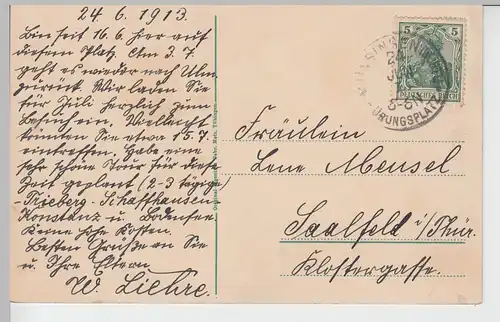 24.6.1913.
Bin seit 16.6. hier auf
diesem Platz. Am 3.7.
geht es wieder nach Ulm
zurück. Wir laden Sie
für Juli herzlich zum
Besuch ein. Vielleicht
können Sie etwa 15.7.
eintreffen. Habe eine
sehr schöne Tour für diese
Zeit geplant (2-3 tägige)
-Trieberg-Schaffhausen
Konstanz u. Bodensee.
Keine hohe Kosten.
Besten Grüße an Sie
u. Ihre Eltern
W. Liehre.
5 5
MÜNSINGEN
24
JUN
5-6
ÜBUNGSPLATZ
Fräulein
Lene Meusel
Saalfeld i/Thür.
Klostergasse.